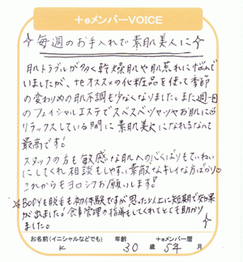 +eメンバーVOICE
毎週のお手入れで素肌美人に
肌トラブルが多く乾燥肌や肌荒れに悩んで
いましたが、+eオススメの化粧品を使って季節
の変わりめの肌不調も少なくなりました。また週一日
のフェイシャルエステでスベスベツヤツヤお肌に
リラックスしている間に素肌美人になれるなんて
最高です。
スタッフの方も敏感な肌への心くばりもていねい
にしてくれ相談もしやすい素敵なキレイな方ばかり。
これからもヨロシクお願いします。
BODYも脱毛も初体験ですが思った以上に短期で効果
が出ました。食事管理の指導もしてくれとても助かり
ました。
お名前(イニシャルなどでも) 年齢 +eメンバー暦
K 30歳 54月